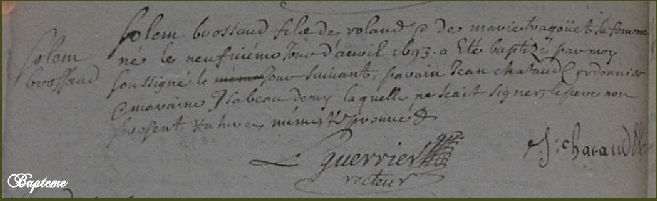 solem
brossaud
solem brossaud fils de roland & de marie tragoüet sa femme
ne le neufuiéme Jour d'avril 1693. a Eté baptizé par moy
soussigné le mesme Jour suivant, parain Jean chataud Cordonnier
& maraine Isabeau demy laquelle ne scait signer, le pere non
present
approuvé
L guerrier
recteur
J: chataud
Bapteme